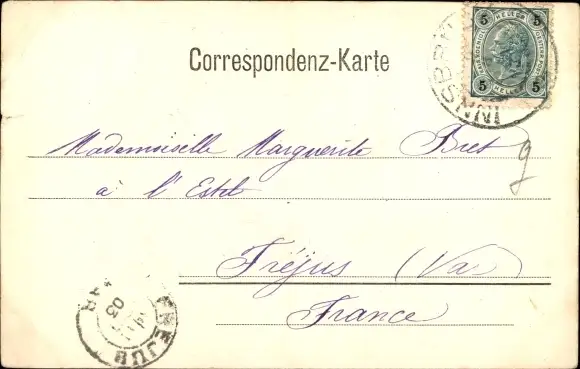 Correspondenz-Karte
5 HELLER 5
5 HELLER 5
INNSBR
Mademoiselle Marguerite Bret
à l'Estel
Fréjus (Var)
France
FREJUS
VAR
03
9